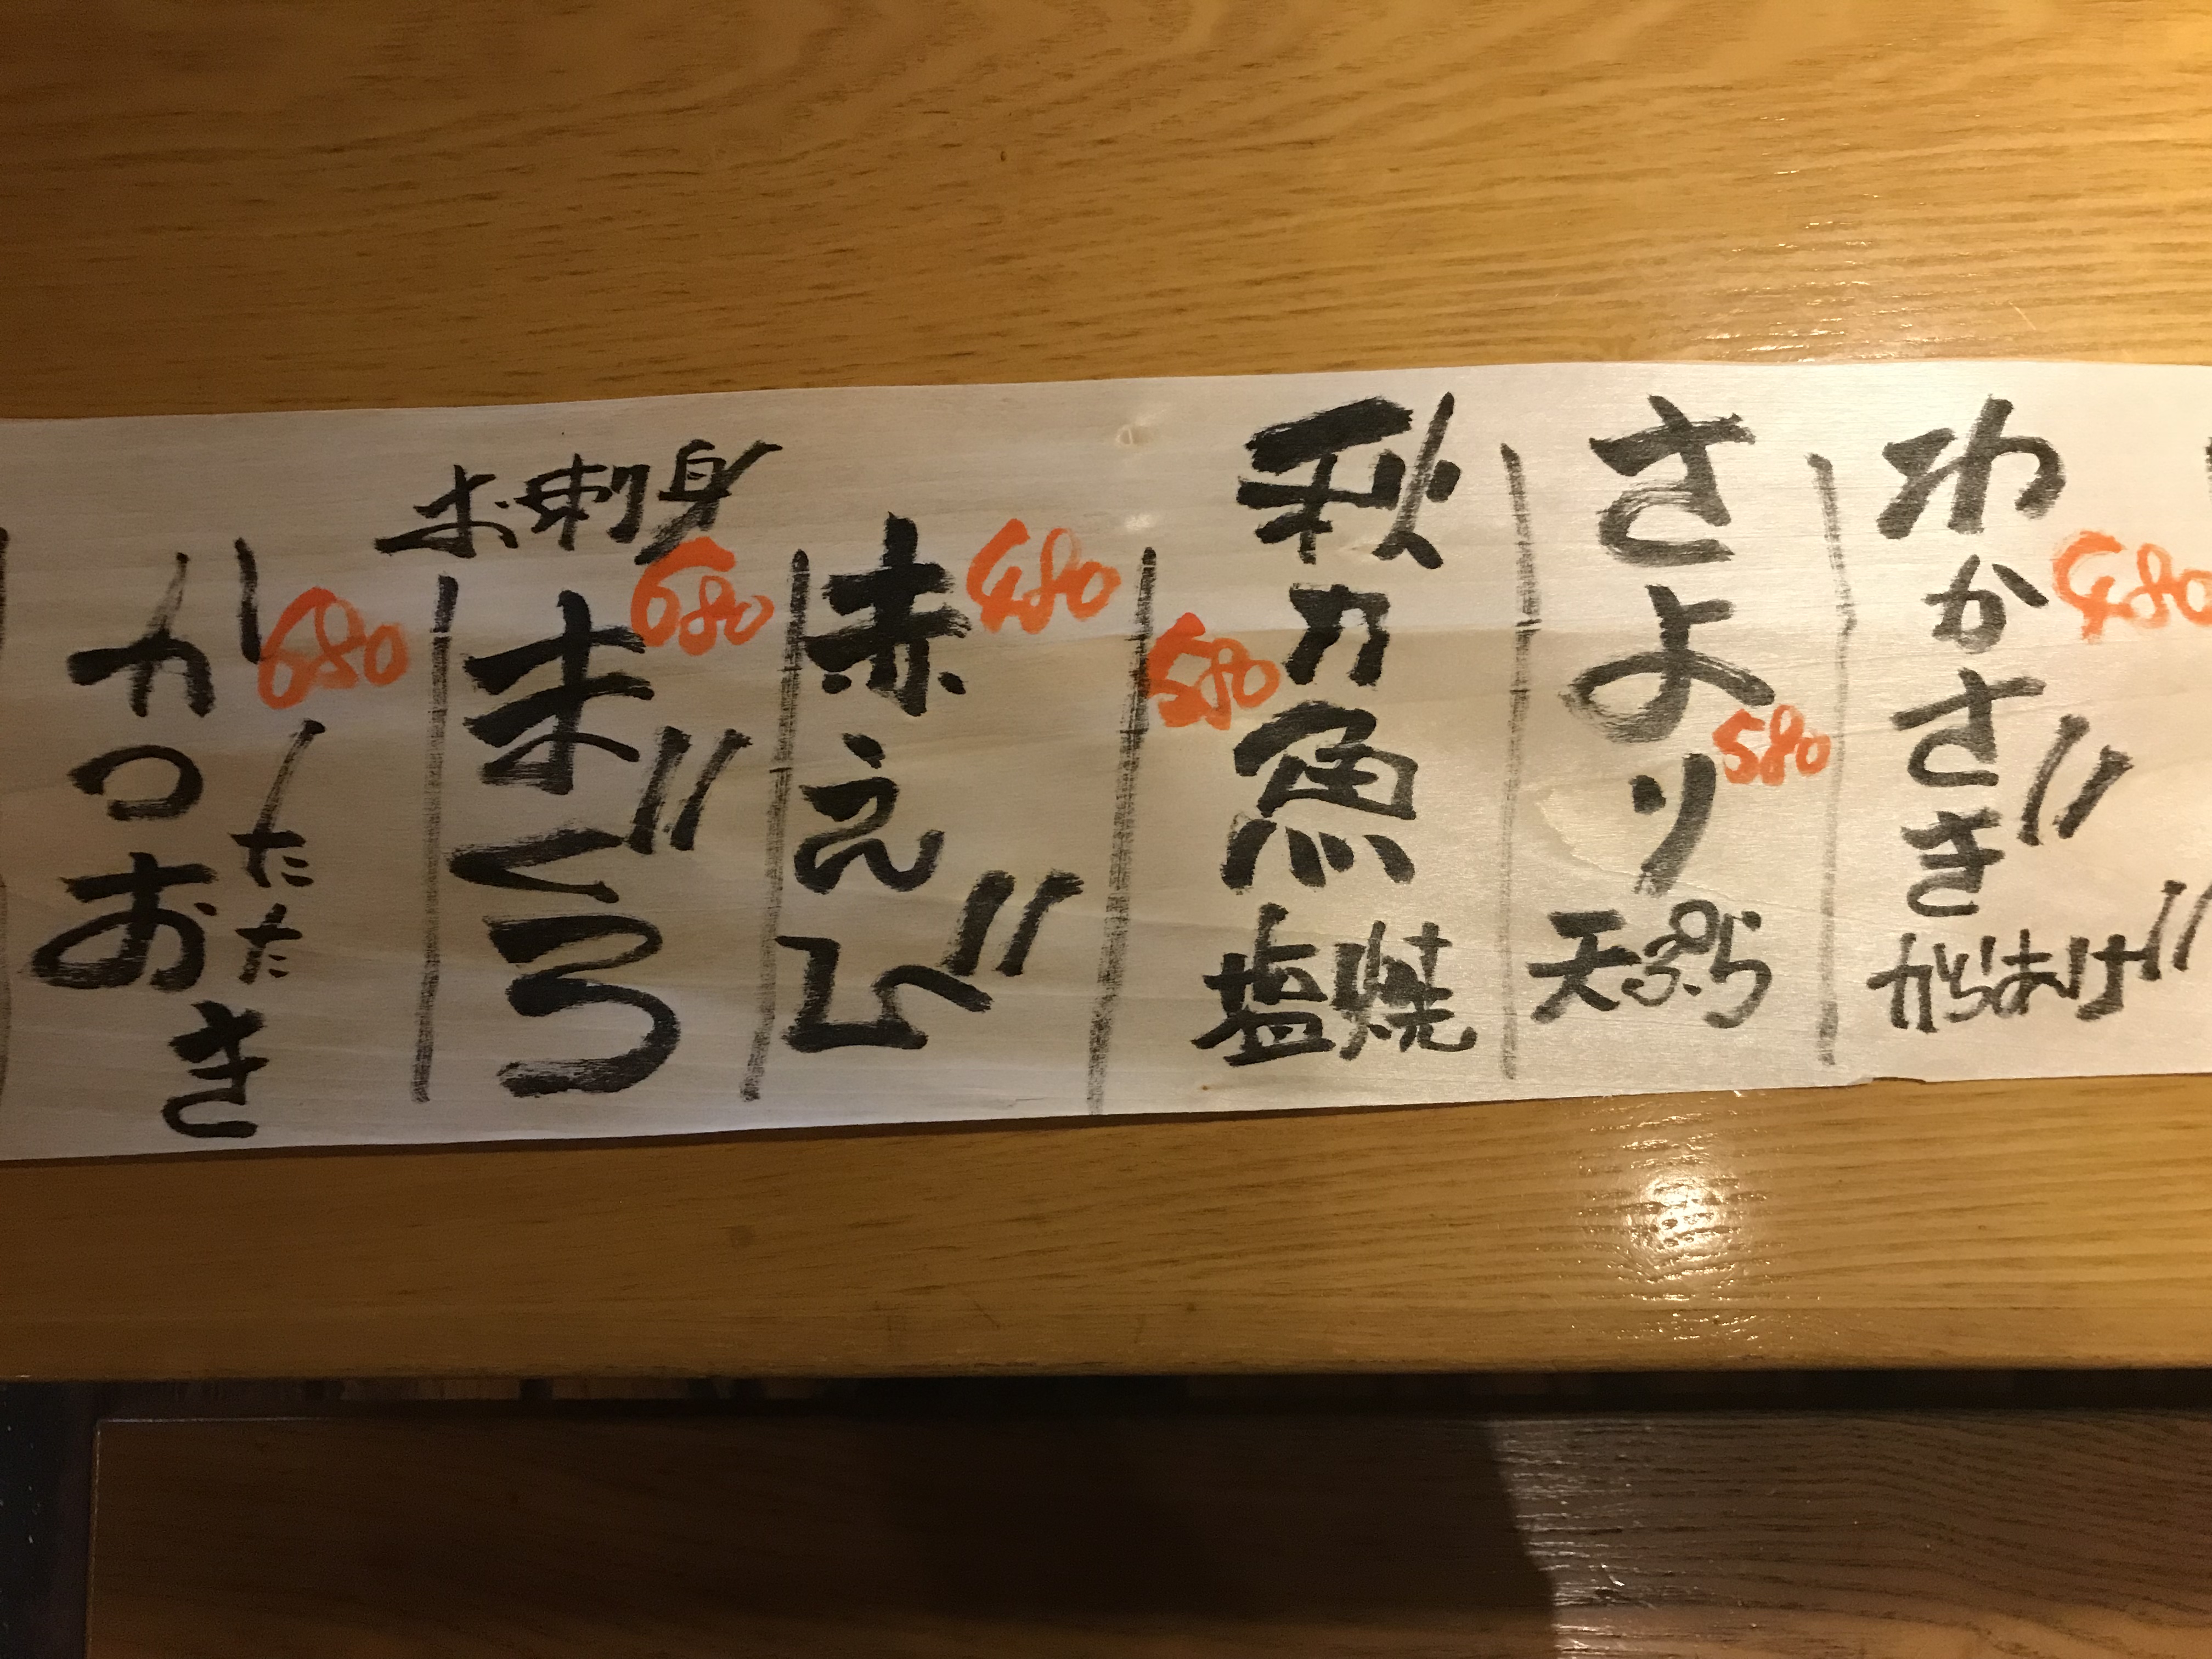 わかさぎ
480
からあげ
さより
580
天ぷら
秋刀魚
580
塩焼
赤えび
480
お刺身
まぐろ
680
かつお
680
たた
き